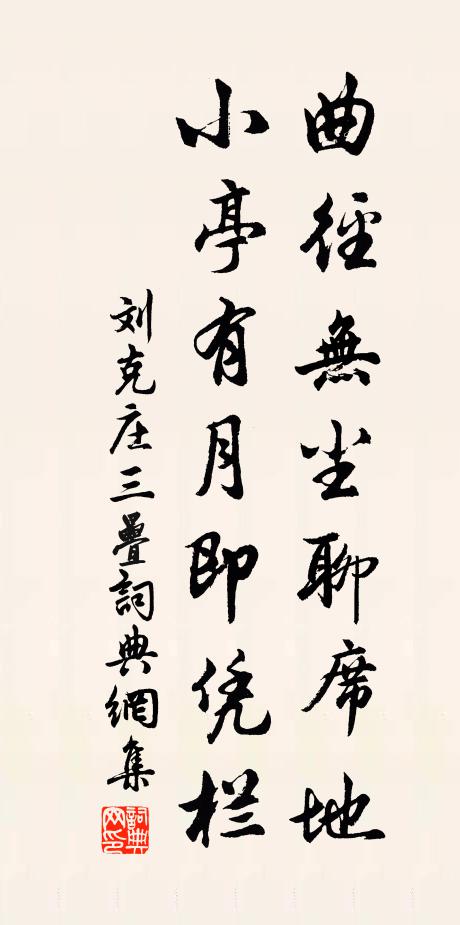 曲径無尘聊席地
小亭有月即凭栏
刘克庄三疊詞典網集
詞典网印